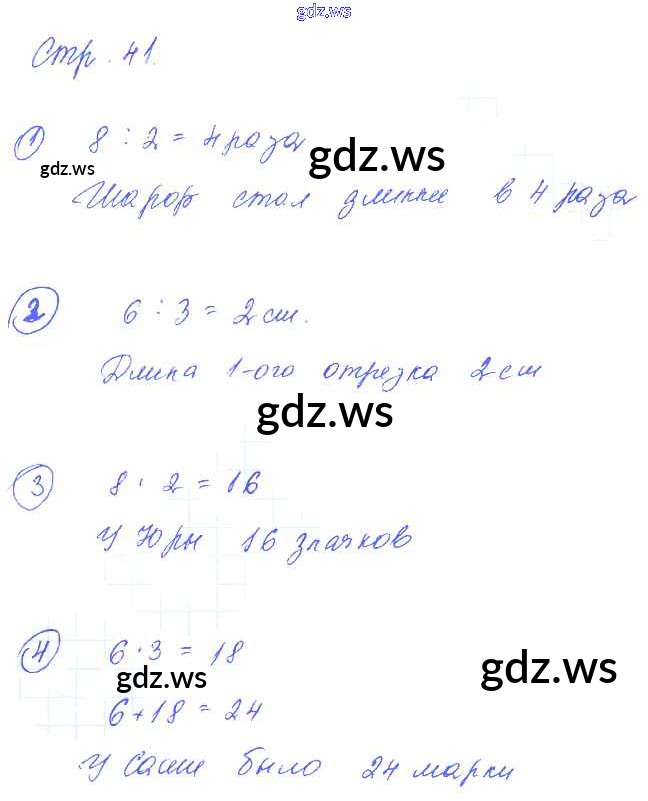 gdz.ws
Стр. 41.
1 8 : 2 = 4 раза
gdz.ws
gdz.ws
Шарф стал длиннее в 4 раза
2 6 : 3 = 2 см.
Длина 1-ого отрезка 2 см
gdz.ws
3 8 · 2 = 16
У Юры 16 значков
4 6 · 3 = 18
gdz.ws
gdz.ws
6 + 18 = 24
У Саши было 24 марки